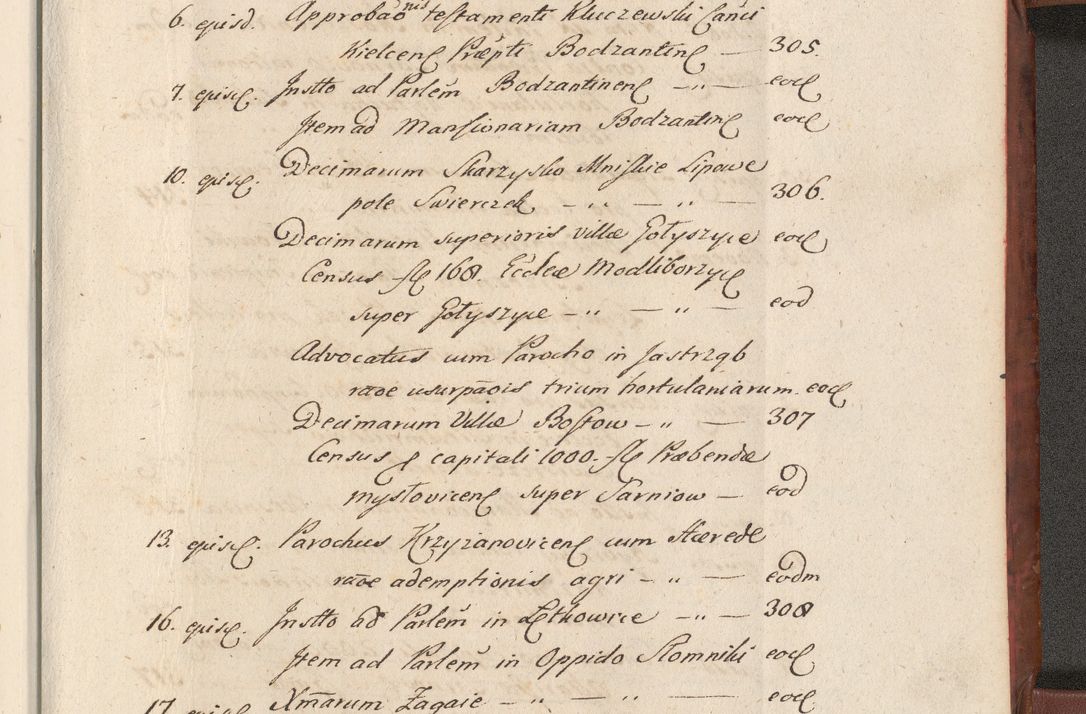 6. episd. Approbaõ nis testamenti Kluczewski Canci
Kielcen Præpti Bodzantin — 305.
7. episc. Instto ad Parlem Bodzantinen — „ — eod
Item ad Mansionariam Bodzantin eod
10. episc. Decimarum Skarzysko Mniskie Lipowe
pole Swierczek — „ — „ — 306.
Decimarum superioris villæ Gołyszyce eod
Census fl 168. Eccleæ Modliborzyc
super Gołyszyce — „ — „ — eod
Advocatus cum Parocho in Jastrząb
raõe usurpaõis trium hortulaniarum. eod
Decimarum Villæ Bostow — „ — 307
Census & capitali 1000. fl Præbendæ
mysłovicen super Sarniow — eod
13. episc. Parochus Krzyżanovicen cum Hærede
raõe ademptionis agri — „ — eodm
16. episc. Instto ad Parlem in Letkowice — „ — 308
Item ad Parlem in Oppido Słomniki eod
17. episc. Xmarum Zagaie — „ — „ — eod